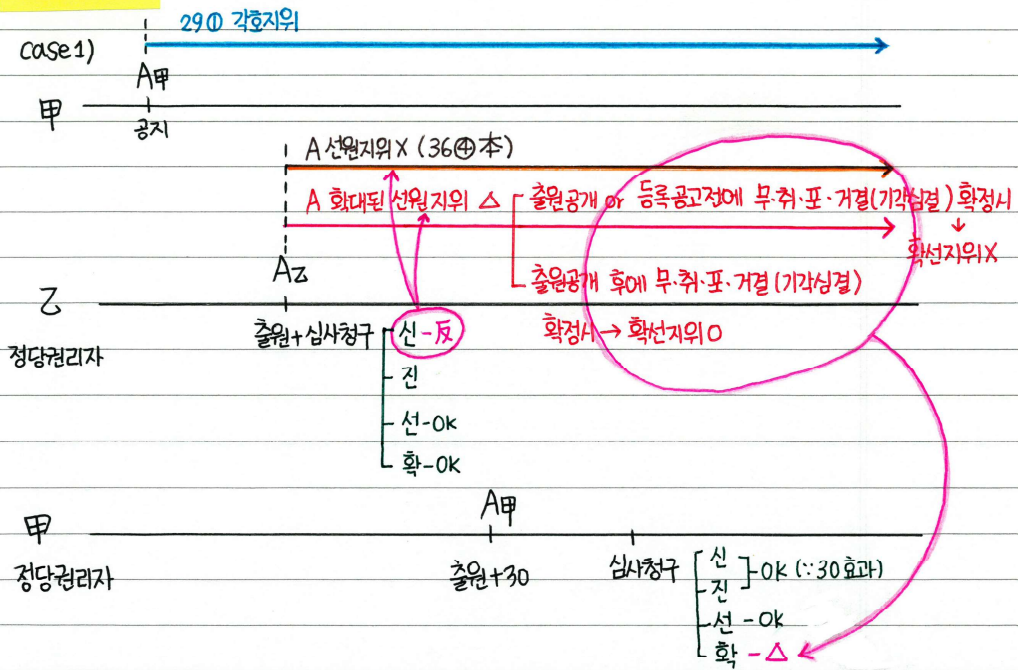 29① 각호지위
case1)
A甲
甲
공지
A 선원지위 X (36④本)
A 확대된 선원지위 △ 출원공개 or 등록공고전에 무·취·포·거결(기각심결) 확정시
↓
확선지위X
출원공개 후에 무·취·포·거결(기각심결)
확정시 → 확선지위 O
A乙
乙
정당권리자
출원+심사청구
신-反
진
선-OK
확-OK
A甲
甲
정당권리자
출원+30
심사청구
신
진
OK (∵30효과)
선-OK
확-△